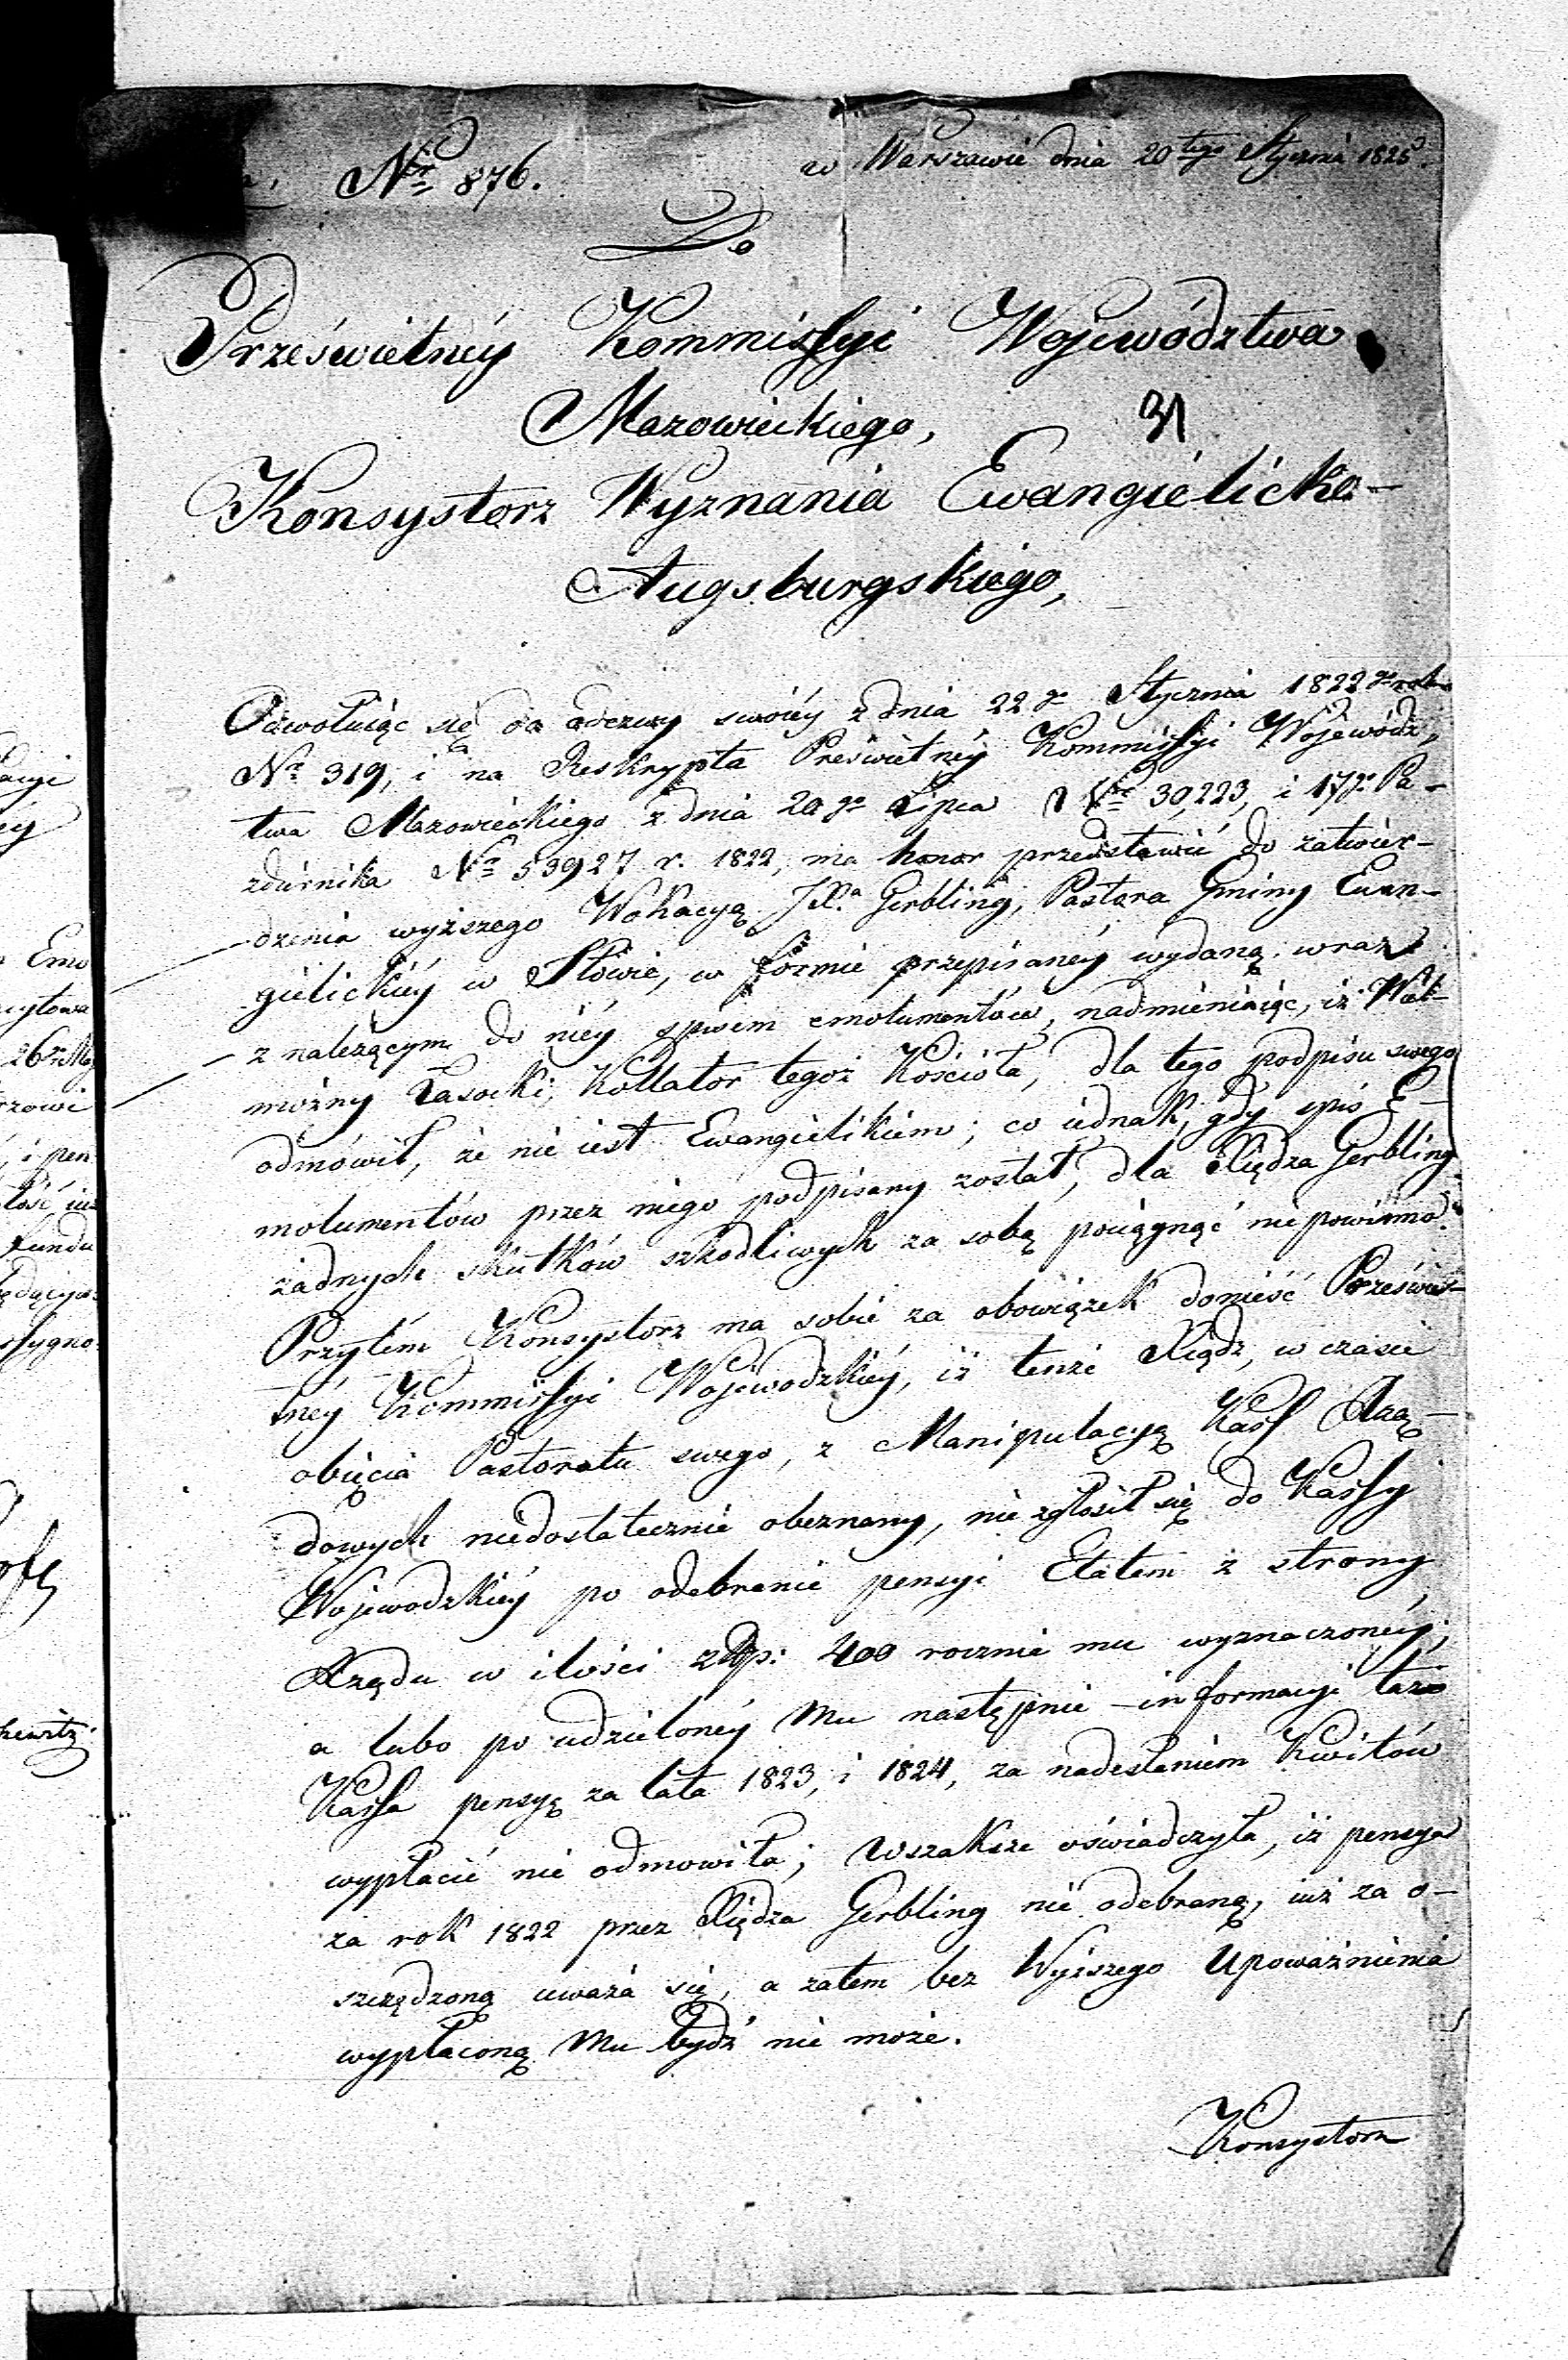 Nr 876.
w Warszawie dnia 20tego Stycznia 1825.
Do
Prześwietnéy Kommissyi Województwa
Mazowieckiego,
31
Konsystorz Wyznania Ewangielicko-
Augsburgskiego,
Odwołuiąc się do odezwy swoiéy z dnia 22go Stycznia 1822go roku
Nro 319, i na Reskrypta Prześwietnéy Kommissyi Wojewódz-
twa Mazowieckiego z dnia 20go Lipca Nro 30,223, i 17go Pa-
zdziernika Nro 53927 r. 1822, ma honor przedstawić do zatwier-
dzenia wyższego Wokacyą JX.a Gerbling, Pastora Gminy Ewan-
gielickiéy w Iłowie, w formie przepisanéy wydaną, wraz
z należącym do niéy spisem emolumentów, nadmieniaiąc, iż Wiel-
możny Łasocki, Kollator tegoż Kościoła, dla tego podpisu swego
odmówił, że nie iest Ewangielikiem; co iednak, gdy spis E-
molumentów przez niego podpisany został, dla Xiędza Gerbling
żadnych skutków szkodliwych za sobą pociągnąć nie powinno.
Przytém Konsystorz ma sobie za obowiązek donieść Prześwie-
tnéy Kommissyi Wojewodzkiéy, iż tenże Xiądz, w czasie
obięcia Pastoratu swego, z Manipulacyą Kass Rzą-
dowych niedostatecznie obeznany, nie zgłosił się do Kassy
Wojewodzkiéy po odebranie pensyi Etatem z strony
Rządu w ilości złp: 400 rocznie mu wyznaczonéy;
a lubo po udzielonéy mu następnie informacyi taż
Kassa pensyę za lata 1823, i 1824, za nadesłaniem Kwitów
wypłacić nie odmowiła; wszakże oświadczyła, iż pensya
za rok 1822 przez Xiędza Gerbling nie odebraną, iuż za o-
szczędzoną uważa się, a zatem bez Wyższego Upoważnienia
wypłaconą mu bydź nie może.
Konsystorz